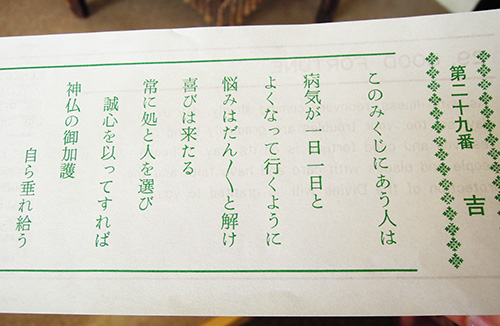 第二十九番 吉
このみくじにあう人は
病気が一日一日と
よくなって行くように
悩みはだん〳〵と解け
喜びは来たる
常に処と人を選び
誠心を以ってすれば
神仏の御加護
自ら垂れ給う